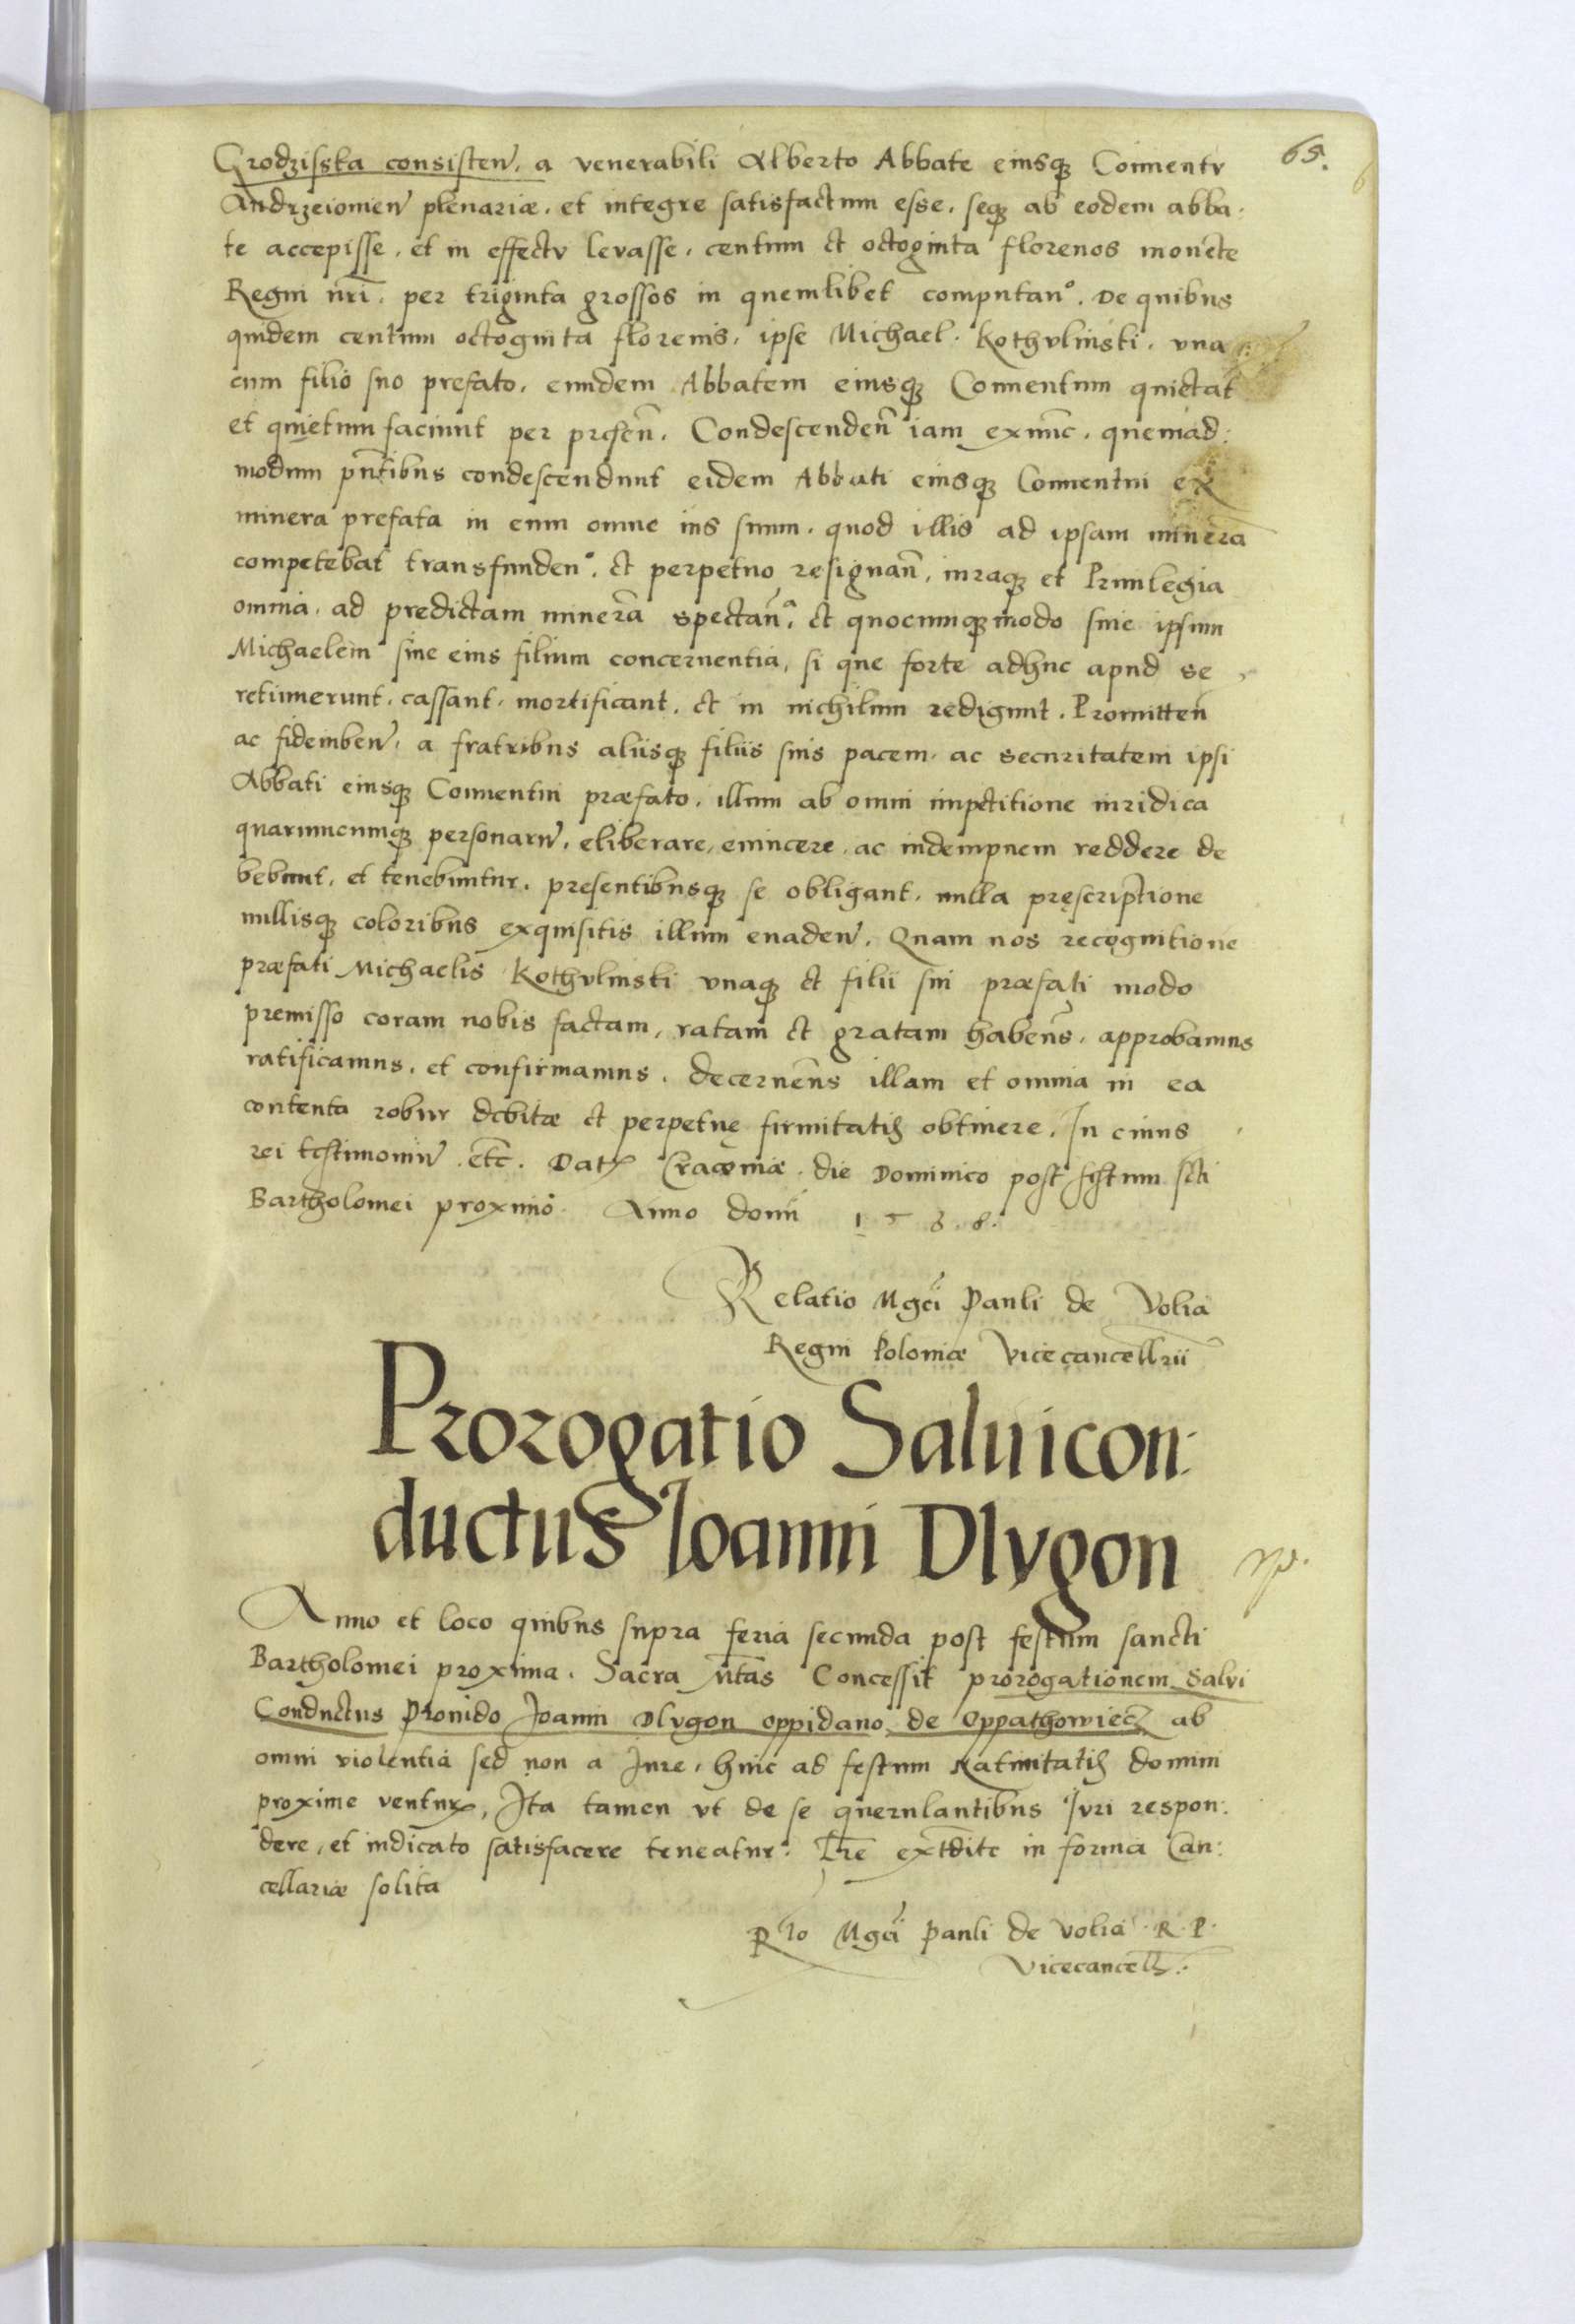 65.
Grodzisska consisten̄. a venerabili Alberto Abbate eiusq3 Conuentv
Andrzeiouien̄ plenariæ. et integre satisfactum esse. seq3 ab eodem abba:
te accepisse. et in effectv levasse. centum et octoginta florenos monete
Regni nr̄i. per triginta grossos in quemlibet computan°. De quibus
quidem centum octoginta florenis. ipse Michael. Kothvlinski. vna
cum filio suo prefato. eundem Abbatem eiusq3 Conuentum quietat
et quietum faciunt per presen̄. Condescenden̄ iam exnunc. quemad:
modum pn̄tibus condescendunt eidem Abbati eiusq3 Conuentui ex
minera prefata in eum omne ius suum. quod illis ad ipsam minera
competebat transfunden°. et perpetuo resignan̄. iuraq3 et Priuilegia
omnia. ad predictam minerā spectan̄ᵃ. et quocumq3modo siue ipsum
Michaelem siue eius filium concernentia, si que forte adhuc apud se
retinuerunt. cassant. mortificant. et in nichilum redigunt. Promitten̄
ac fideiuben̄. a fratribus aliisq3 filiis suis pacem. ac securitatem ipsi
Abbati eiusq3 Conuentui præfato. illum ab omni impetitione iuridica
quarumcumq3 personarū. eliberare, euincere. ac indempnem reddere de
bebunt. et tenebuntur. presentibusq3 se obligant. nulla pręscriptione
nullisq3 coloribus exquisitis illum euaden̄. Quam nos recognitione
præfati Michaelis Kothvlinski vnaq3 et filii sui præfati modo
premisso coram nobis factam, ratam et gratam haben̄s. approbamus
ratificamus. et confirmamus. decernen̄s illam et omnia in ea
contenta robur debitæ et perpetuę firmitatis obtinere. In cuius
rei testimoniū. etc̄. Datum Cracouiæ. die Dominico post festum sc̄ti
Bartholomei proximo. Anno domi 1538.
Relatio Mgci Pauli de Volia
Regni Poloniæ Vicecancellrii
Prorogatio Saluicon:
ductus Ioanni Dlvgon
Anno et loco quibus supra feria secunda post festum sancti
Bartholomei proxima. Sacra Mtas Concessit prorogationem Salvi
Conductus Prouido Joanni Dlvgon oppidano de Oppathowiecz ab
omni violentia sed non a Jure, hinc ad festum Natiuitatis domini
proxime ventur̄, Ita tamen vt de se querulantibus Jvri respon:
dere, et iudicato satisfacere teneatur. Lr̄e extdite in forma Can:
cellariæ solita
Rlo Mgci Pauli de Volia R. P.
Vicecancell.